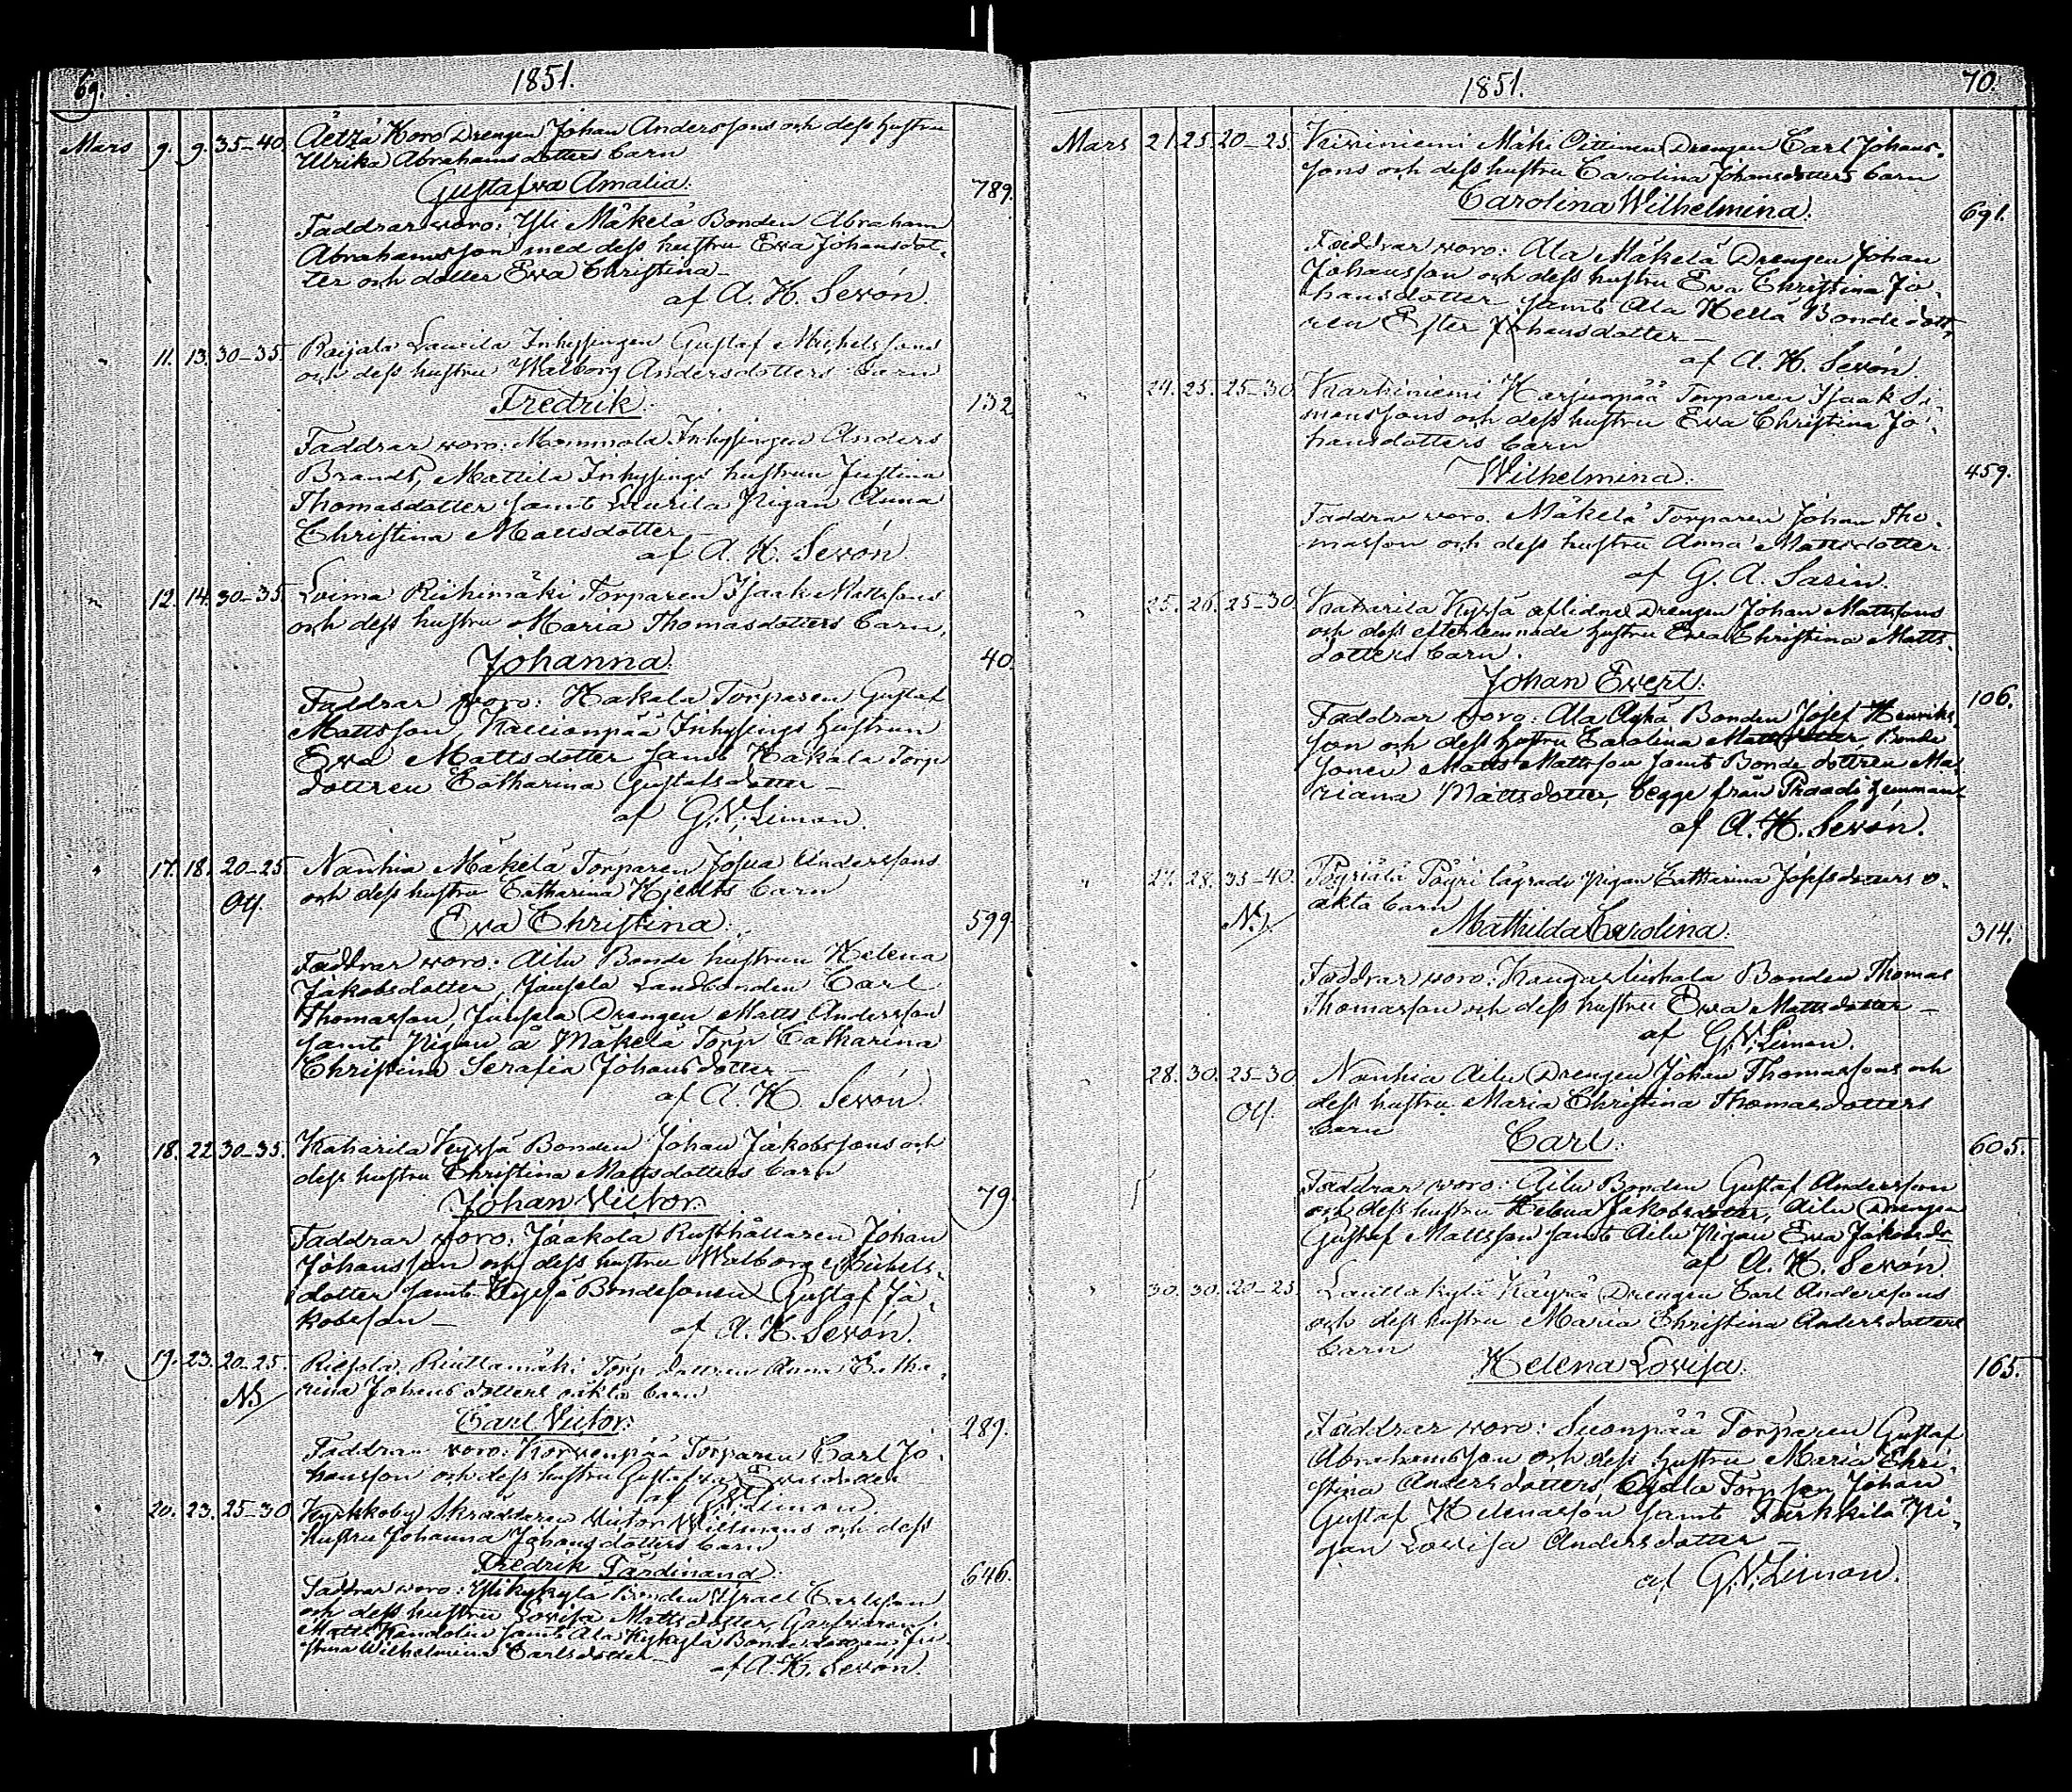 69.
1851.
Mars 9. 9. 35-40. Äetzä Koro Drengen Johan Anderssons och dess hustru
Ulrika Abrahamsdotters barn
Gustafva Amalia. 789.
Faddrar woro: Yli Mäkelä Bonden Abraham
Abrahamsson med dess hustru Eva Johansdot-
ter och dotter Eva Christina —
af A. H. Sevón.
" 11. 13. 30-35. Raijala Laurila Inhysingen Gustaf Michelssons
och dess hustru Walborg Andersdotters barn
Fredrik. 132
Faddrar woro: Mommola Inhysingen Anders
Brandt, Mattila Inhysings hustrun Justina
Thomasdotter samt Laurila Pigan Anna
Christina Mattsdotter —
af A. H. Sevón
" 12. 14. 30-35. Loima Riihimäki Torparen Isaak Mattssons
och dess hustru Maria Thomasdotters barn,
Johanna. 40.
Faddrar woro: Kakala Torparen Gustaf
Mattsson, Kallionpää Inhysings hustrun
Eva Mattsdotter samt Kakala Torp
dottren Catharina Gustafsdotter —
af G. V. Limon.
" 17. 18. 20-25. Nanhia Mäkelä Torparen Josua Anderssons
Oä. och dess hustru Catharina Hjelts barn
Eva Christina. 599.
Faddrar woro: Ailu Bonde hustrun Helena
Jakobsdotter, Jausela Landbonden Carl
Thomasson, Jausela Drengen Matts Andersson
samt Pigan å Mäkelä Torp Catharina
Christina Serafia Johansdotter —
af A. H. Sevón.
" 18. 22. 30-35. Kaharila Kyssä Bonden Johan Jakobssons och
dess hustru Christina Mattsdotters barn
Johan Victor. 79
Faddrar woro: Jaakola Rusthållaren Johan
Johansson och dess hustru Walborg Michels-
dotter samt Kyssä Bondesonen Gustaf Ja-
kobsson —
af A. H. Sevón.
" 19. 23. 20-25. Riesola Riuttamäki Torp dottren Anna Catha-
NB rina Johansdotters oäkta barn
Carl Victor. 289.
Faddrar woro: Korvenpää Torparen Carl Jo-
hansson och dess hustru Gustafva
af G. V. Limon
" 20. 23. 25-30 Kyrkkoby Skräddaren Victor Willmans och dess
hustru Johanna Johansdotters barn
Fredrik Ferdinand. 646.
Faddrar woro: Yli kykylä Bonden Israel Carlsson
och dess hustru Lovisa Mattsdotter, Garfvaren
Matts Kandolin samt Ala Kykylä Bondedottren Ju-
stina Wilhelmina Carlsdotter —
af A. H. Sevón.
1851.
70.
Mars 21. 25. 20-25. Kiviniemi Mäki Pittinen Drengen Carl Johans-
sons och dess hustru Carolina Johansdotters barn
Carolina Wilhelmina. 691.
Faddrar woro: Ala Mäkelä Drengen Johan
Johansson och dess hustru Eva Christina Jo-
hansdotter samt Ala Kellä Bondedott-
ren Ester Johansdotter —
af A. H. Sevón
" 24. 25. 25-30. Karhiniemi Harjunpää Torparen Isaak Si-
monssons och dess hustru Eva Christina Jo-
hansdotters barn
Wilhelmina. 459.
Faddrar woro: Mäkelä Torparen Johan Tho-
masson och dess hustru Anna Mattsdotter
af G. A. Sarin.
" 25. 26. 25-30. Kaharila Kyssä aflidne Drengen Johan Mattssons
och dess efterlemnade hustru Eva Christina Matts-
dotters barn.
Johan Evert. 106.
Faddrar woro: Ala Äijhä Bonden Josef Henriks-
son och dess hustru Carolina Mattsdotter, Bonde
sonen Matts Mattsson samt Bonde dottren Ma-
riana Mattsdotter, begge från Praadi hemman
af A. H. Sevón.
" 27. 28. 35-40. lägrade Pigan Catharina Josefsdotters o-
NB äkta barn
Mathilda Carolina. 314.
Faddrar woro: Bonden Thomas
Thomasson och dess hustru Eva Mattsdotter —
af G. V. Limon.
" 28. 30. 25-30 Nanhia Ailu Drengen Johan Thomassons och
Oä. dess hustru Maria Christina Thomasdotters
barn
Carl. 605.
Faddrar woro: Ailu Bonden Gustaf Andersson
och dess hustru Helena Jakobsdotter, Ailu Drengen
Gustaf Mattsson samt Ailu Pigan Eva Jakobsdr
af A. H. Sevón.
" 30. 30. 20-25. Lauttakylä Käyrä Drengen Carl Anderssons
och dess hustru Maria Christina Andersdotters
barn
Helena Lovisa. 165.
Faddrar woro: Suonpää Torparen Gustaf
Abrahamsson och dess hustru Maria Chri-
stina Andersdotter, Torp son Johan
Gustaf Helenasson samt Färkkilä Pi-
gan Lovisa Andersdotter —
af G. V. Limon.